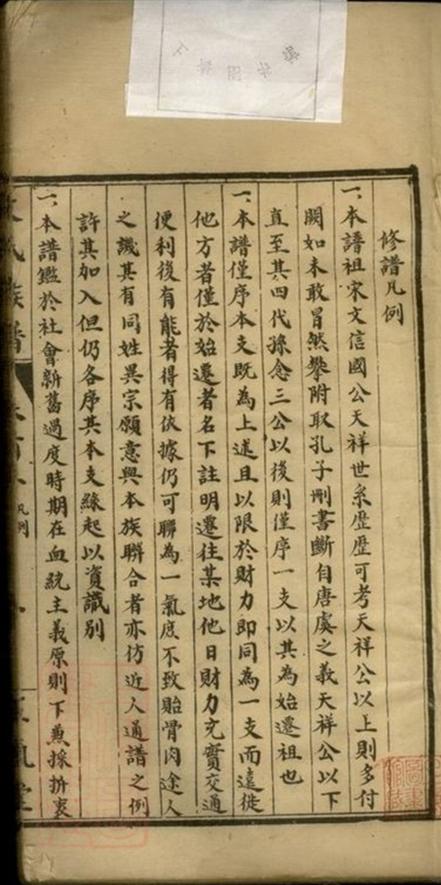 修譜凡例
一、本譜祖宋文信國公天祥世系歷歷可考天祥公以上則多付
闕如未敢冒然攀附取孔子刪書斷自唐虞之義天祥公以下
直至其四代孫念三公以後則僅序一支以其為始遷祖也
一、本譜僅序本支既為上述且以限於財力即同為一支而遠徙
他方者僅於始遷者名下註明遷往某地他日財力充實交通
便利後有能者得有依據仍可聯為一氣庶不致貽骨肉途人
之譏其有同姓異宗願意與本族聯合者亦仿近人通譜之例
許其加入但仍各序其本支緣起以資識別
一、本譜鑑於社會新舊過度時期在血統主義原則下兼採折衷
氏族譜
凡例